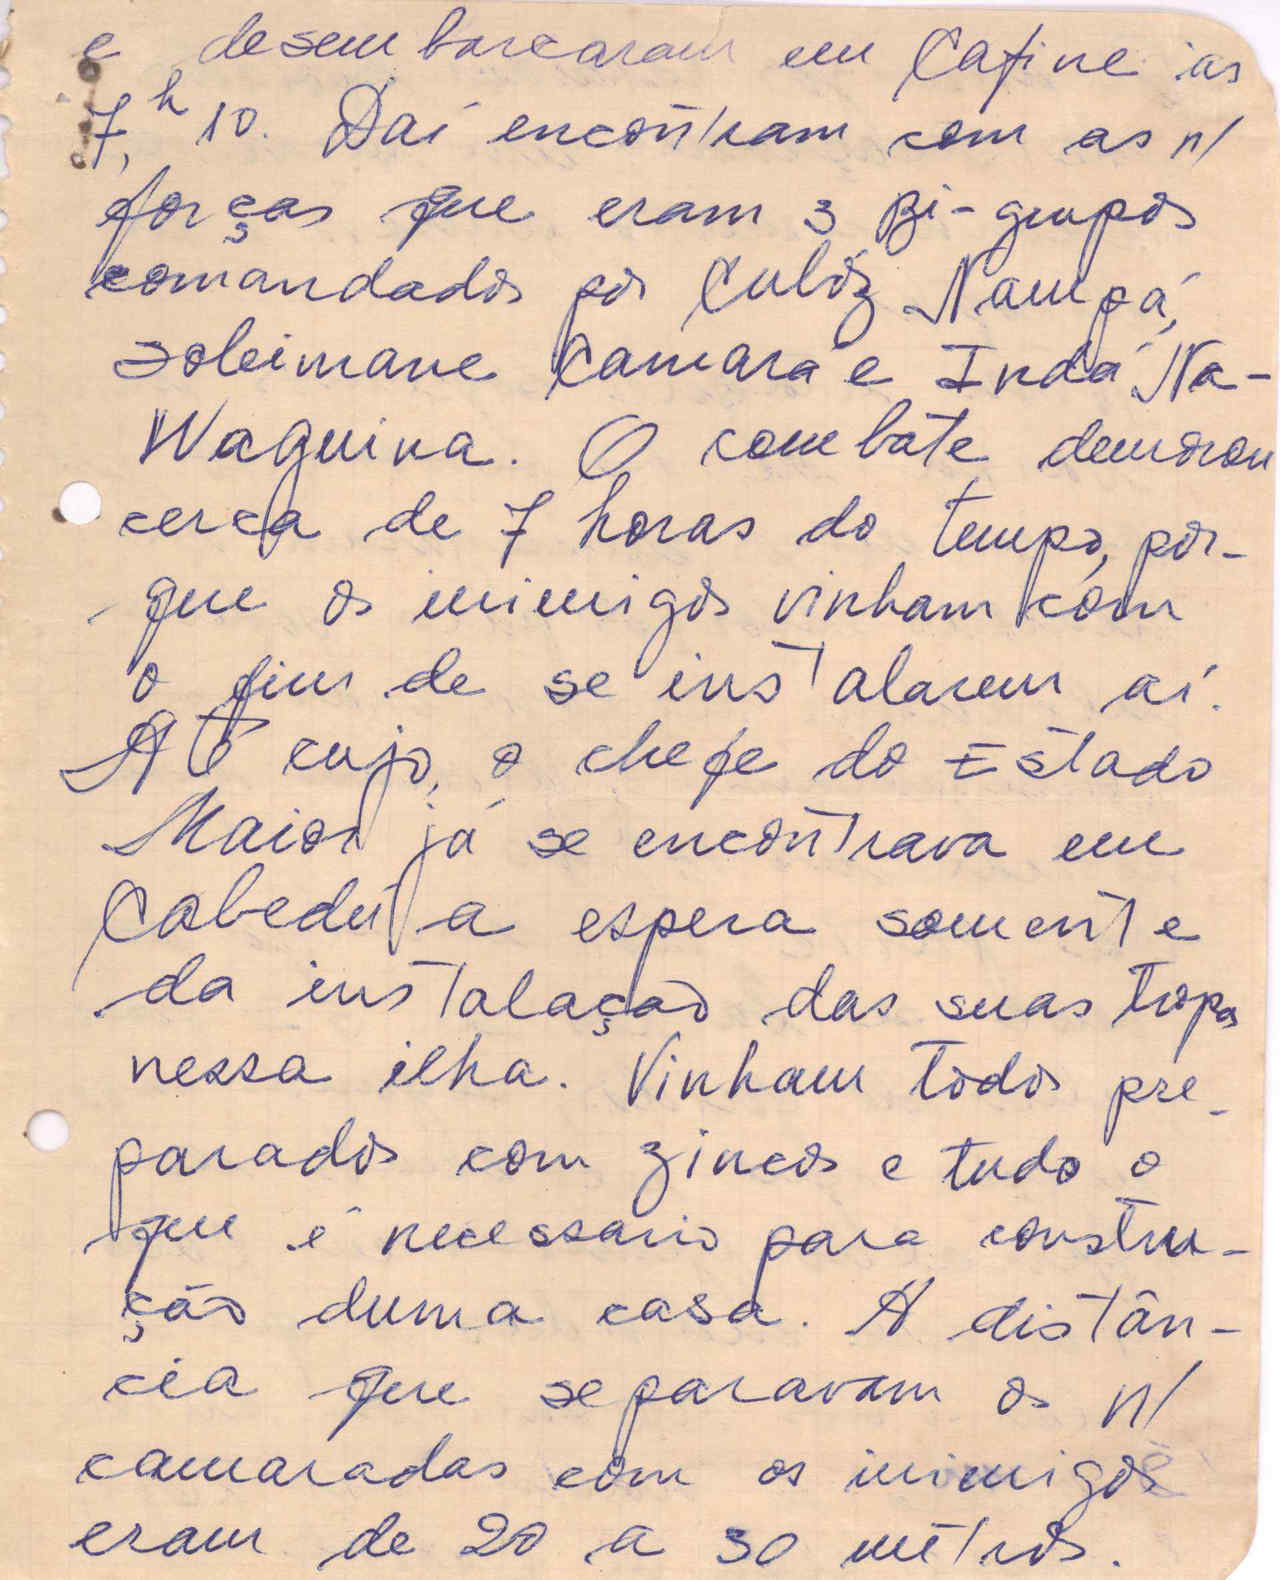 e desembarcaram em Cafine às
7,h 10. Daí encontram com as n/
forças que eram 3 Bi-grupos
comandados por Culóz Nampá,
Soleimane Camará e Indá Na-
Waguina. O combate demorou
cerca de 7 horas do tempo, por-
que os inimigos vinham com
o fim de se instalarem aí.
Até cujo, o chefe do Estado
Maior já se encontrava em
Cabedú a espera somente
da instalação das suas tropas
nessa ilha. Vinham todos pre-
parados com zincos e tudo o
que é necessario para constru-
ção duma casa. A distân-
cia que separavam os n/
camaradas com os inimigos
eram de 20 a 30 métros.